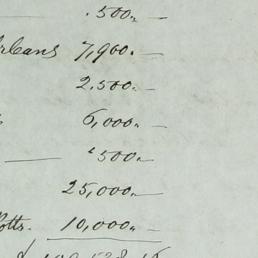 .500„ —
rleans 7,900. —
2.500„ —
6,000„ —
500„ —
25,000„ —
otts. 10,000„ —